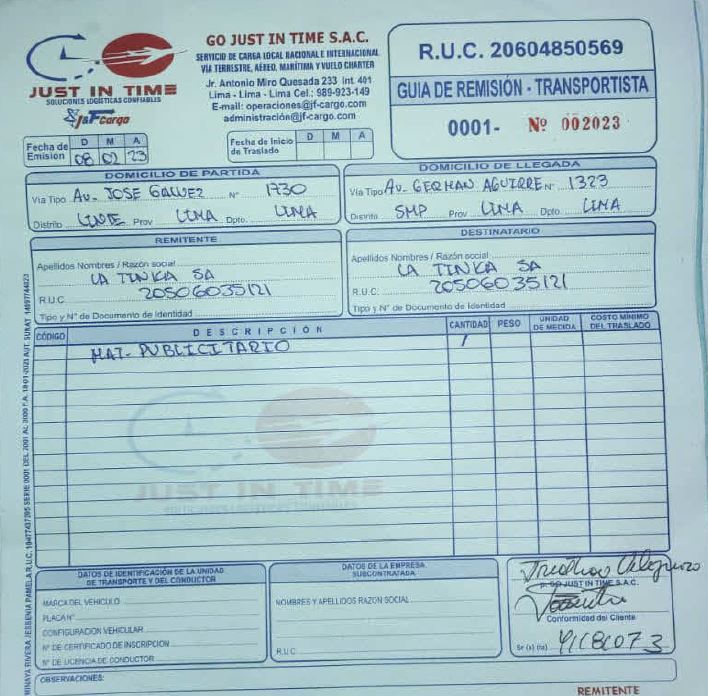 JUST IN TIME
SOLUCIONES LOGÍSTICAS CONFIABLES
J&F Cargo
GO JUST IN TIME S.A.C.
SERVICIO DE CARGA LOCAL NACIONAL E INTERNACIONAL
VÍA TERRESTRE, AÉREO, MARÍTIMA Y VUELO CHARTER
Jr. Antonio Miro Quesada 233 Int. 401
Lima - Lima - Lima Cel.: 989-923-149
E-mail: operaciones@jf-cargo.com
administración@jf-cargo.com
R.U.C. 20604850569
GUIA DE REMISIÓN - TRANSPORTISTA
0001- Nº 002023
Fecha de Emisión D M A
08 02 23
Fecha de Inicio de Traslado D M A
DOMICILIO DE PARTIDA
Vía Tipo AV. JOSE GALVEZ Nº 1730
Distrito LINCE Prov LIMA Dpto. LIMA
DOMICILIO DE LLEGADA
Vía Tipo AV. GERMAN AGUIRRE Nº 1323
Distrito SMP Prov LIMA Dpto. LIMA
REMITENTE
Apellidos Nombres / Razón social
LA TINKA SA
R.U.C. 20506035121
Tipo y Nº de Documento de Identidad
DESTINATARIO
Apellidos Nombres / Razón social
LA TINKA SA
R.U.C. 20506035121
Tipo y Nº de Documento de Identidad
CÓDIGO DESCRIPCIÓN CANTIDAD PESO UNIDAD DE MEDIDA COSTO MÍNIMO DEL TRASLADO
MAT. PUBLICITARIO 1
JUST IN TIME
DATOS DE IDENTIFICACIÓN DE LA UNIDAD
DE TRANSPORTE Y DEL CONDUCTOR
MARCA DEL VEHÍCULO
PLACA Nº
CONFIGURACIÓN VEHICULAR
Nº DE CERTIFICADO DE INSCRIPCION
Nº DE LICENCIA DE CONDUCTOR
DATOS DE LA EMPRESA
SUBCONTRATADA
NOMBRES Y APELLIDOS RAZON SOCIAL
R.U.C.
p. GO JUST IN TIME S.A.C.
Conformidad del Cliente
Sr (a) (ta)
OBSERVACIONES:
REMITENTE